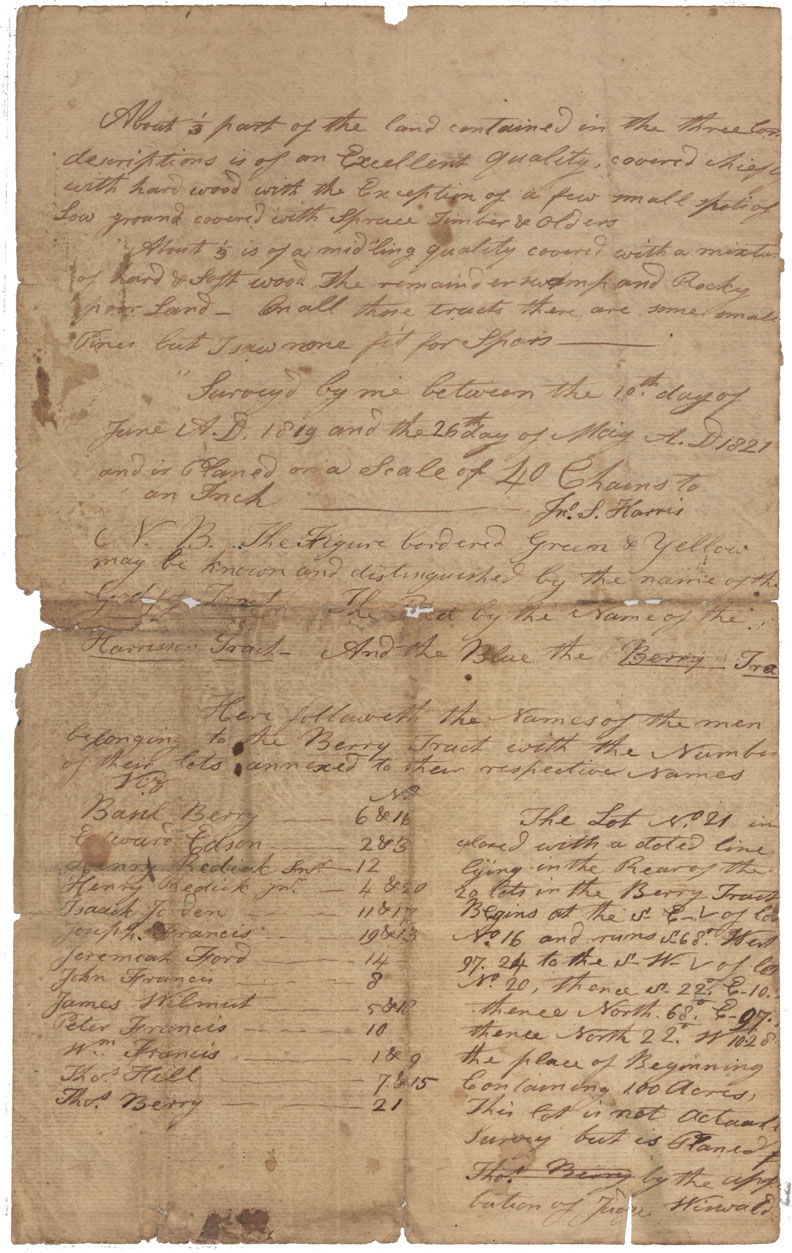 About 1/3 part of the land contained in the three
descriptions is of an Excellent quality, covered
with hard wood with the Exception of a few small spots of
Low ground covered with Spruce Timber & Olders
About 1/3 is of a midling quality covered with a mixtur
of hard & Soft wood The remainder swamp and Rocky
poor Land — On all those tracts there are some small
Pines but I saw none fit for Spars
Survey'd by me between the 10th day of
June A.D. 1819 and the 26th day of May A.D 1821
and is Planed on a Scale of 40 Chains to
an Inch
Jno. S. Harris
N. B. The Figure bordered Green & Yellow
may be known and distinguished by the name of th
Tract The Red by the Name of the
Harrison Tract — And the Blue the Berry Tra
Here followeth the Names of the men
belonging to the Berry Tract with the Number
of their lots annexed to their respective Names
Viz
No.
Basil Berry — 6 & 16
Edward Edson — 2 & 3
Henry Redick Snr — 12
Henry Redick jnr — 4 & 20
Isaack Jorden — 11 & 17
Joseph Francis — 19 & 13
Jeremiah Ford — 14
John Francis — 8
James Wilmut — 5 & 18
Peter Francis — 10
Wm Francis — 1 & 9
Thos Hill — 7 & 15
Thos. Berry — 21
The Lot No 21 in
closed with a doted line
lying in the Rear of the
20 lots in the Berry Tract
Begins at the S. E. V of lot
No 16 and runs S. 68° West
97. 24 to the S- W- V of lot
No. 20, thence S. 22° E- 10.
thence North 68° E- 97.
thence North 22° W 10.28
the place of Beginning
Containing 100 Acres,
This lot is not actual
Survey but is Planed
Thos. Berry by the
bution of Judge Wiswald